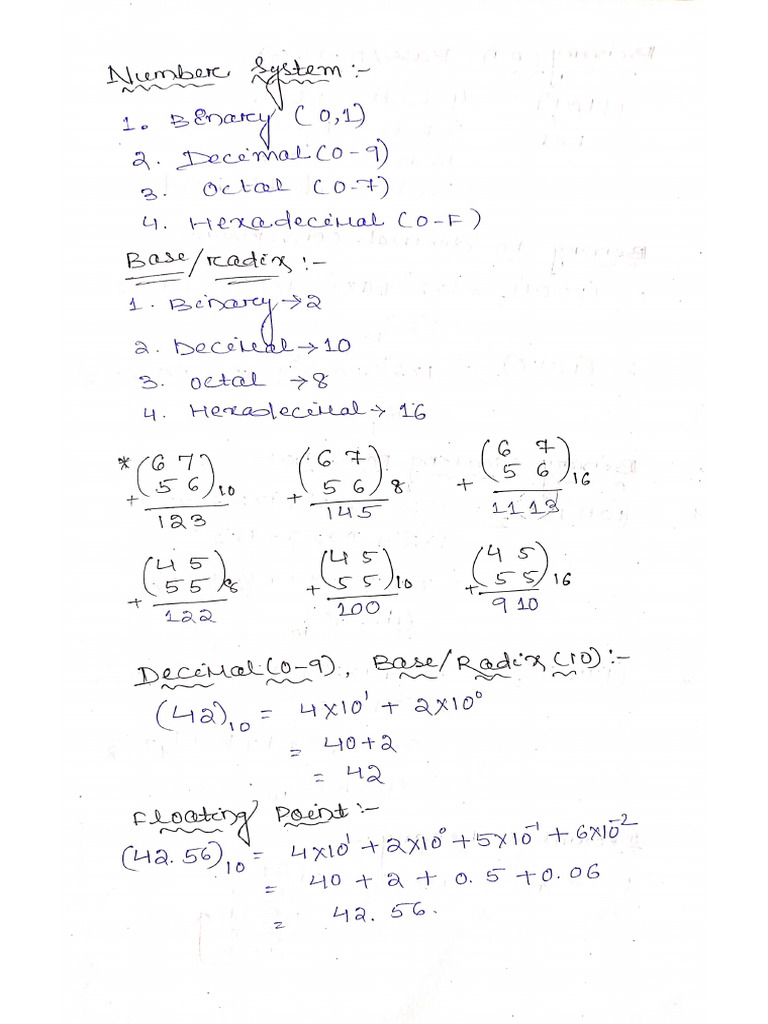 Number System :-
1. Binary (0,1)
2. Decimal (0-9)
3. Octal (0-7)
4. Hexadecimal (0-F)
Base/Radix :-
1. Binary → 2
2. Decimal → 10
3. Octal → 8
4. Hexadecimal → 16
* (6 7 (6 7 (6 7
+ 5 6)10 + 5 6)8 + 5 6)16
123 145 11 13
(4 5 (4 5 (4 5
+ 5 5)8 + 5 5)10 + 5 5)16
122 100 9 10
Decimal (0-9), Base/Radix (10) :-
(42)₁₀ = 4×10¹ + 2×10⁰
= 40+2
= 42
Floating Point :-
(42.56)₁₀ = 4×10¹ + 2×10⁰ + 5×10⁻¹ + 6×10⁻²
= 40 + 2 + 0.5 + 0.06
= 42.56.